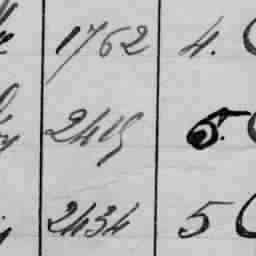 1762 4.
2419 5.
2434 5